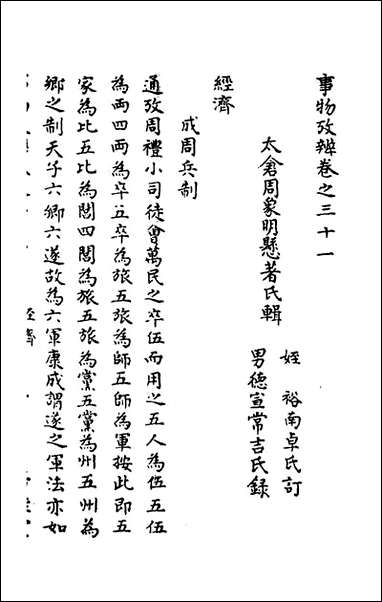 事物攷辨卷之三十一
太倉周象明懸著氏輯
姪 裕南卓氏訂
男德宣常吉氏録
經濟
成周兵制
通攷周禮小司徒會萬民之卒伍而用之五人為伍五伍
為兩四兩為卒五卒為旅五旅為師五師為軍按此即五
家為比五比為閭四閭為旅五旅為黨五黨為州五州為
鄉之制天子六鄉六遂故為六軍康成謂遂之軍法亦如
經濟